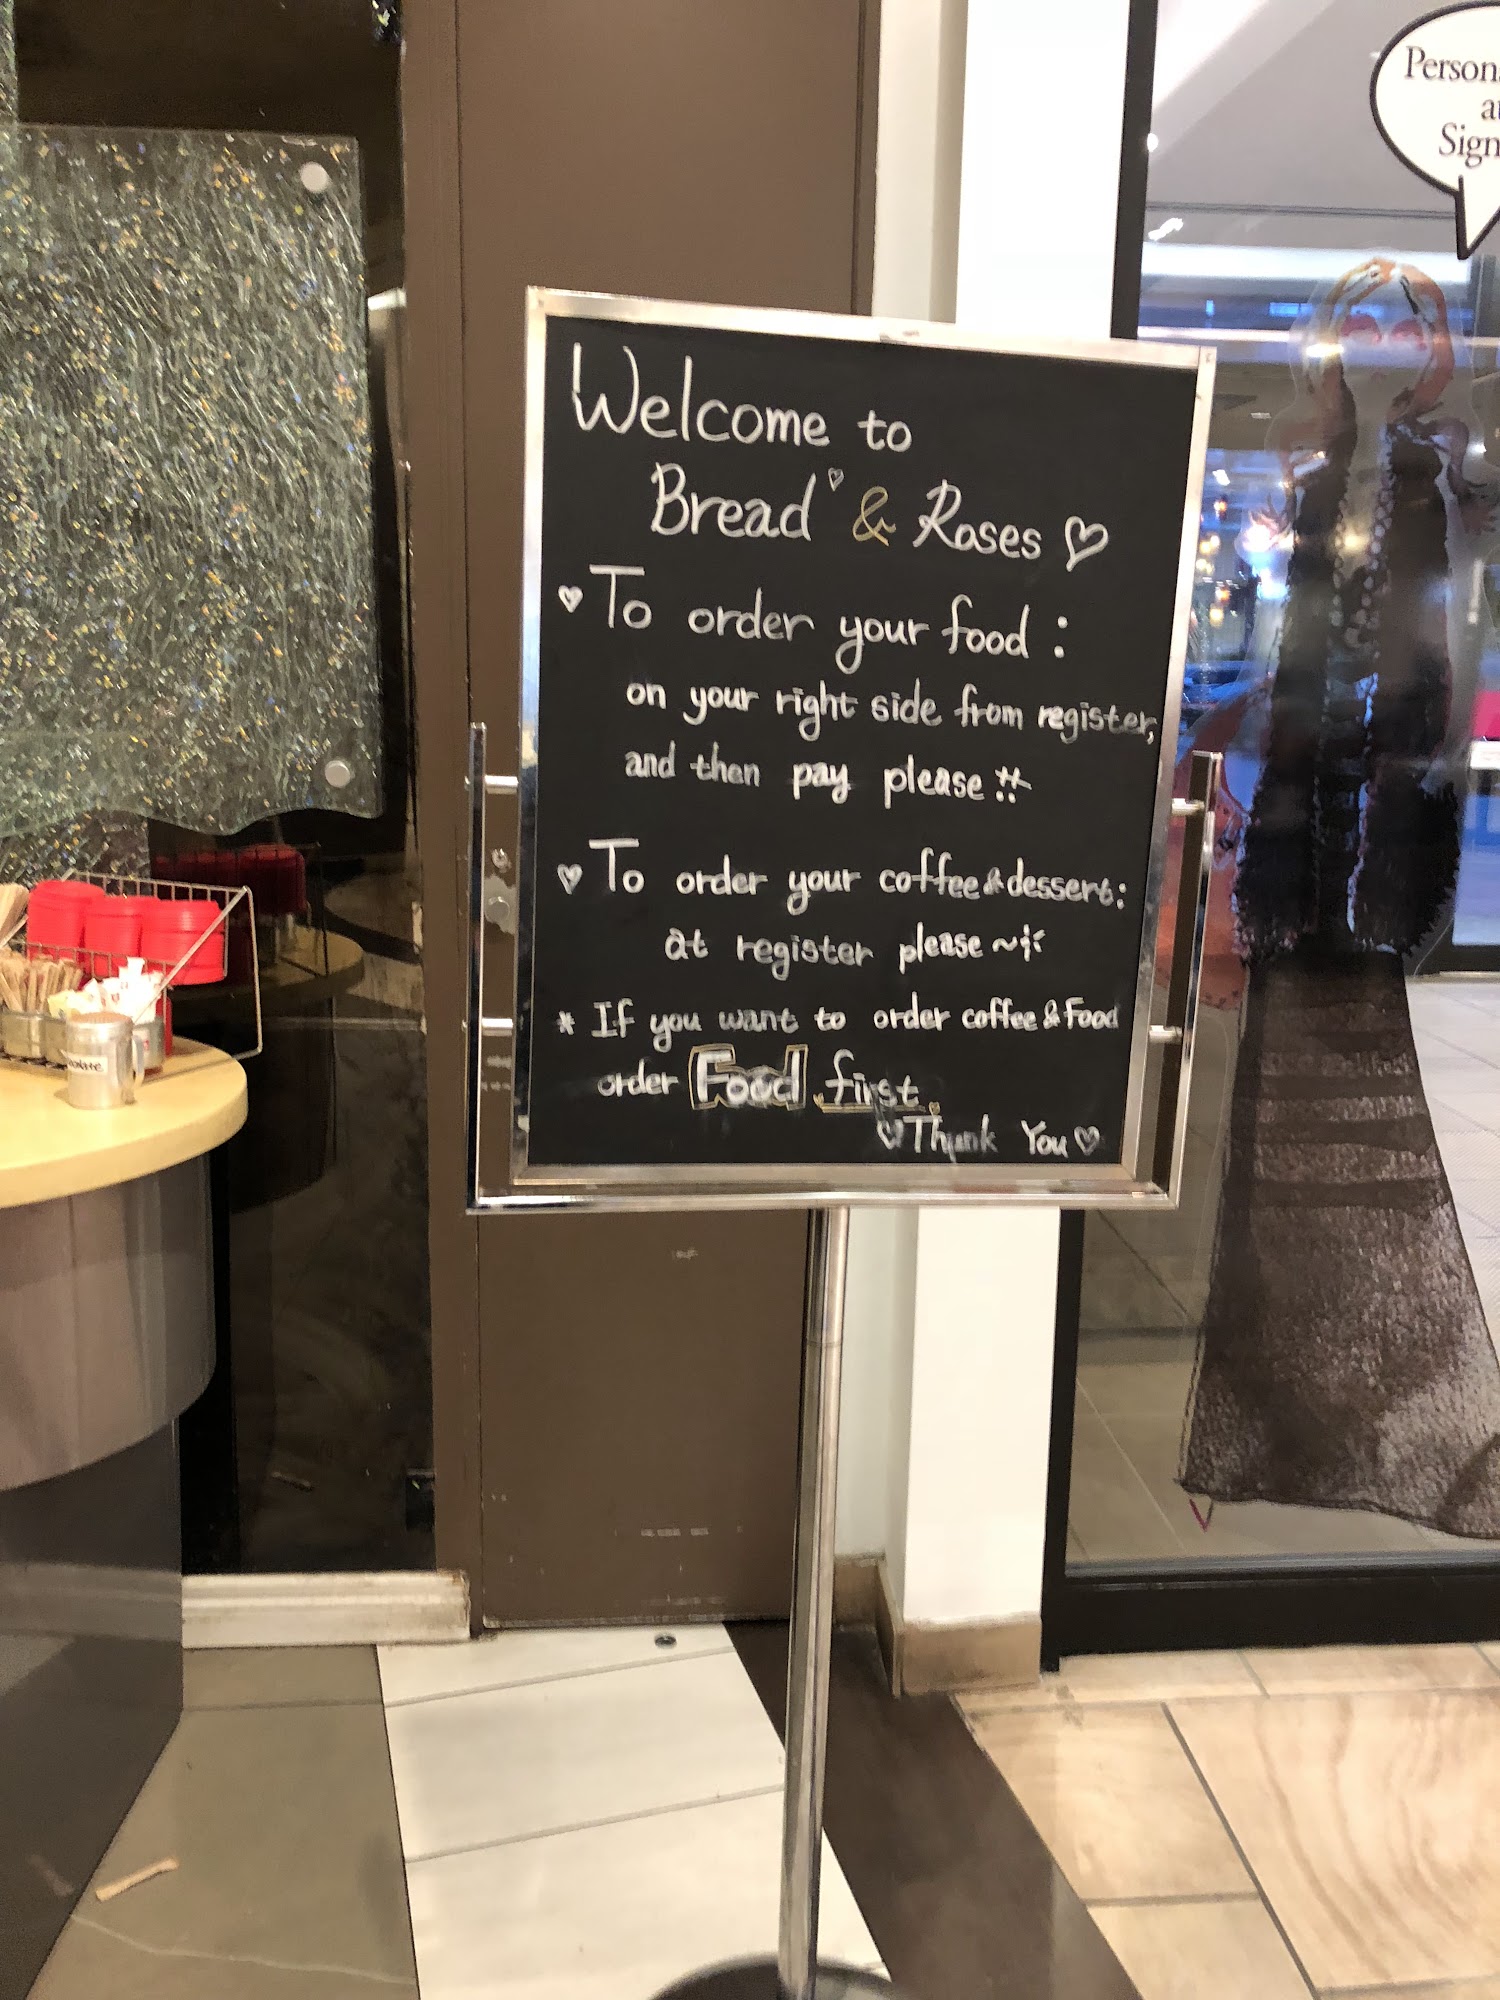 Welcome to
Bread & Roses
To order your food :
on your right side from register,
and then pay please !!
To order your coffee & dessert:
at register please ~
* If you want to order coffee & Food
order Food first.
Thank You